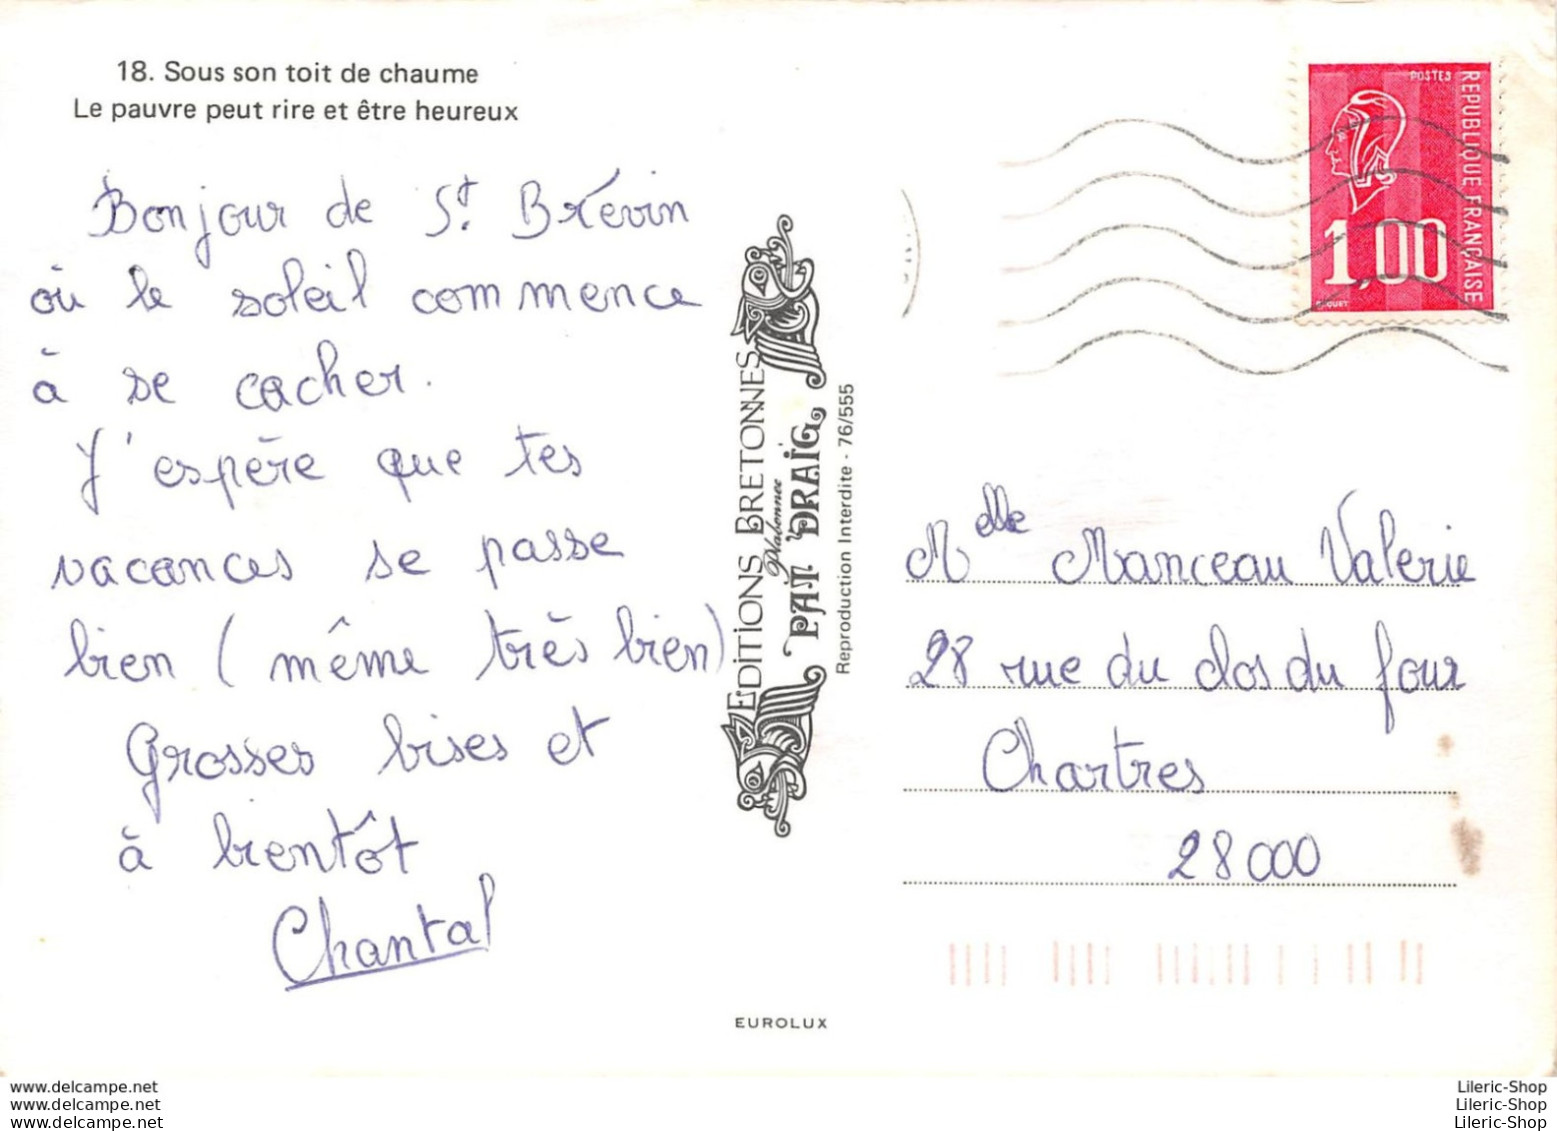 18. Sous son toit de chaume
Le pauvre peut rire et être heureux
Bonjour de St. Brévin
où le soleil commence
à se cacher.
J'espère que tes
vacances se passe
bien (même très bien)
Grosses bises et
à bientôt
Chantal
EDITIONS BRETONNES
Plabennec
PAT DRAIG
Reproduction Interdite - 76/555
EUROLUX
POSTES
REPUBLIQUE FRANÇAISE
1,00
BEQUET
Melle Manceau Valerie
28 rue du clos du four
Chartres
28000
www.delcampe.net
www.delcampe.net
www.delcampe.net
Lileric-Shop
Lileric-Shop
Lileric-Shop